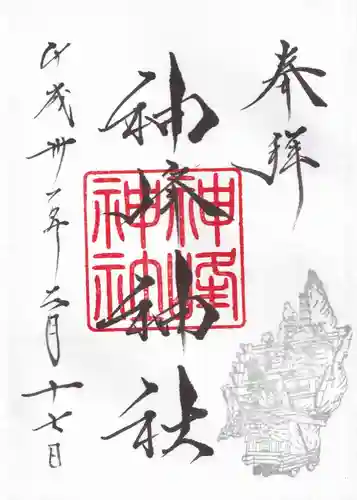 奉拝
神峰神社
平成卅一年月十七日
神峰
神社